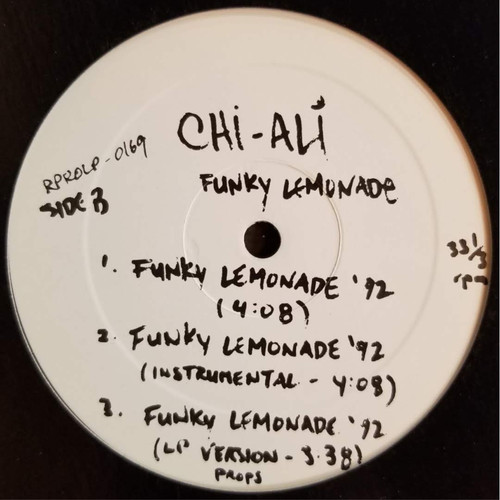 CHi-ALi
RPROLP-0169
FUNKY LEMONADE
SIDE B
33 1/3
rpm
1. FUNKY LEMONADE '92
(4:08)
2. FUNKY LEMONADE '92
(INSTRUMENTAL - 4:08)
3. FUNKY LEMONADE '92
(LP VERSION - 3.38)
PROPS